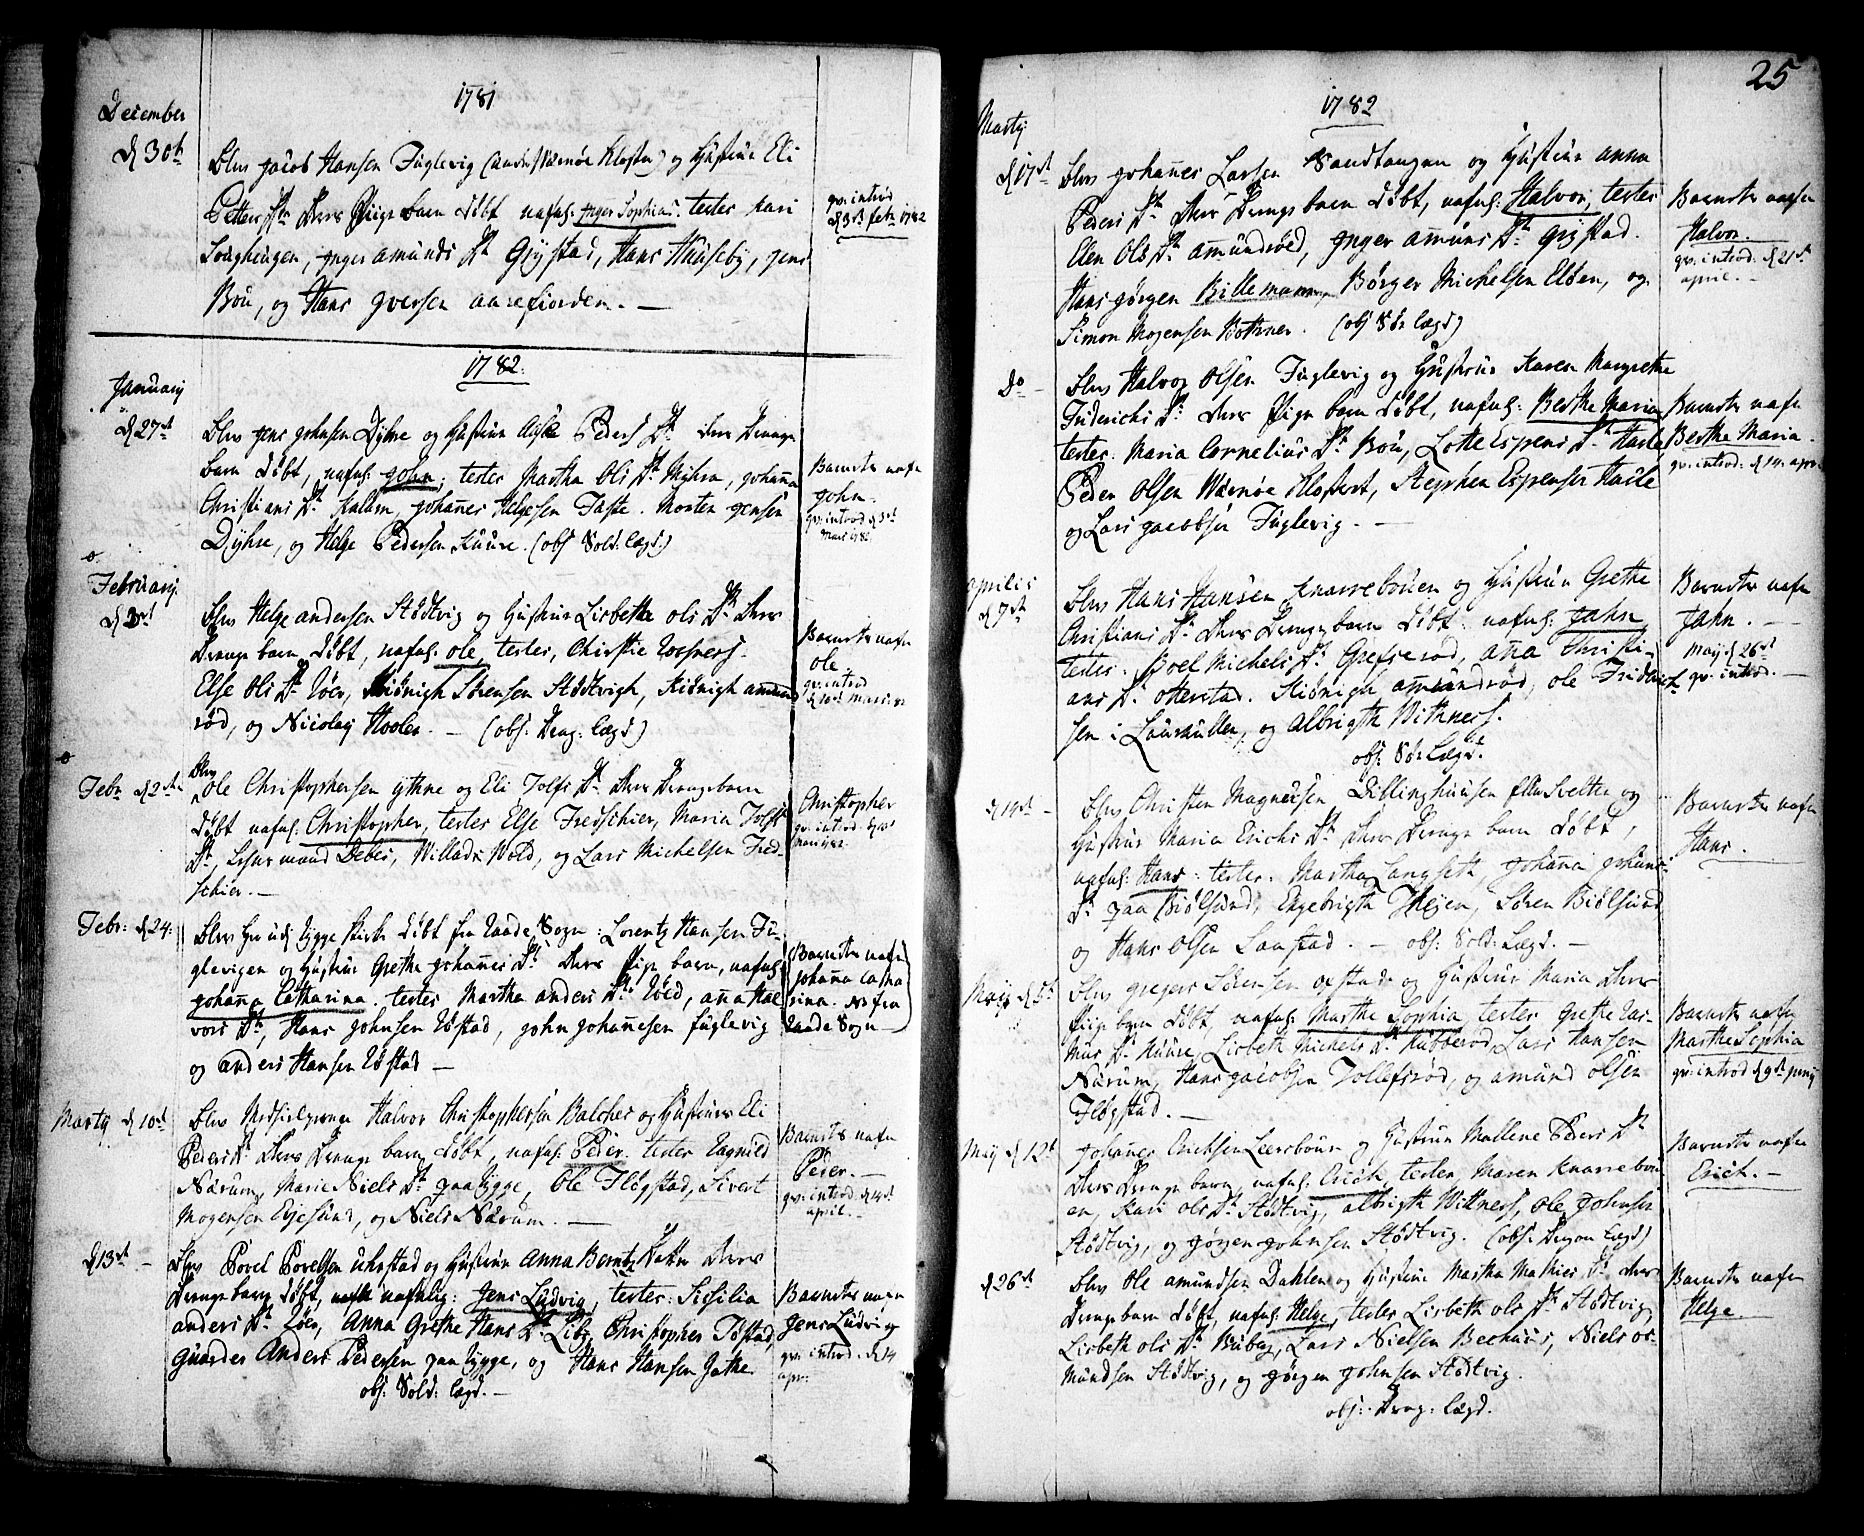 1781
December
d 30te
Blev Jacob Hansen Fuglevig (under Wernøe Kloster) og Hustrue Eli
Petters Dtr Deres Pige barn døbt nafnl: Inger Sophia. testes Kari
Inger Amunds Dtr Gystad, Hans Huuseby, Jens
Bøu, og Hans Iversen Aarefiorden. —
qv: introd
d 3die febr 1782
1782.
January
d 27de
Blev Jens Johnsen Dyhre og Hustrue Aase Peders Dtr deres Drenge
barn døbt, nafnl: John; testes Martha Ols Dtr Myhra, Johanna
Christians Dtr Kalum, Johannes Helgesen Faste. Morten Jensen
Dyhre, og Helge Pedersen Kuure. (obs Sold: Lægd:)
Barnets nafn
John.
qv: introd d 3die
Mars 1782
February
d 3die
Blev Helge Andersen Stødtvig og Hustrue Lisbethe Ols Dtr Deres
Drenge barn døbt, nafnl: Ole, testes, Christie
Else Ols Dtr Løer, Kiönigh Sörensen Stødtvigh, Kiönigh Amund
rød, og Nicolay Hoolen. — (obs: Drag: Lægd)
Barnets nafn
Ole.
qv: introd
d 10de Martii
Febr d 2de
Blev
Ole Christophersen Ythne og Eli Tolfs Dtr Deres Drengebarn
døbt nafnl: Christopher, testes Else Fredschier, Maria Tolfs
Dtr, Debes, Willads Wold, og Lars Michelsen Fred-
schier. —
Christopher
qv: introd: d
Mars 1782
Febr: d 24:
Blev her udj Rygge Kirke døbt fra Raade Sogn: Lorentz Hansen Fu-
glevigen og Hustrue Grethe Johannes Dtr Deres Pige barn, nafnl:
Johanna Catharina. testes Martha Anders Dtr Røed, Anna Hal-
vors Dtr, Hans Johnsen Røstad, John Johannesen Fuglevig
og Anders Hansen Røstad —
Barnets nafn
Johanna Catha
rina. fra
Raade Sogn —
Marty d 10de
Blev Halvor Christophersen Balcher og Hustrues Eli
Peders Dtr Deres Drenge barn døbt, nafnl: Peder. testes Ragnild
Nærum, Marie Niels Dtr paa Rygge, Ole Fløgstad, Sivert
Mogensen Evjesund, og Niels Nærum. —
Barnets nafn
Peder. —
qv: introd: d 14de
april. —
d 13de —
Blev Povel Povelsen Uhrstad og Hustrue Anna Berntz Datter Deres
Drenge barn døbt, nafnlig: Jens Ludvig, testes: Sicsilia
Anders Dtr Løer, Anna Grethe Hans Dtr Libz, Christopher Tøstad,
Guarder Anders Pedersen paa Rygge, og Hans Hansen Jothe
obs: Sold: Lægd. —
Barnets nafn
Jens Ludvig
qv: introd. d 14
apr:
25
1782
Marty
d 17de
Blev Johannes Larsen Sandtangen og Hustrue Anna
Peders Dtr Deres Drenge barn døbt, nafnl: Halvor, testes
Elen Ols Dtr Amundrøed, Inger Amuns Dtr Gystad.
Hans Jørgen Billemann, Børger Michelsen Eløen, og
Simon Mogensen Bottner. (obs Søe Lægd)
Barnets nafn
Halvor.
qv: introd: d 21de
april. —
Do —
Blev Halvor Olsen Fuglevig og Hustrue Karen Margretha
Friderichs Dtr Deres Pige barn døbt, nafnl: Berthe Maria
testes: Maria Cornelius Dtr Bøu, Lotte Espens Dtr Hasle
Peder Olsen Wærnøe Klostert, Stephen Espensen Hasle
og Lars Jacobsen Fuglevig. —
Barnets nafn
Berthe Maria.
qv: introd: d 14. apr:
Aprilis
d 7de
Blev Hans Hansen Knarrebouen og Hustrue Grethe
Christians Dtr Deres Drenge barn døbt: nafnl: Jahn
testes. Boel Michels Dtr Grefserød, Ana Christi-
ans Dtr Otterstad. Kiönigh Amundrød, Ole Friderich
sen i Laurkullen, og Albrigth Withners.
obs: Søe Lægd.
Barnets nafn
Jahn. —
Maij d 26de
qv: introd. —
d 14de —
Blev Christen Magnessen Dillinghuusen eller og
Hustrue Maria Erichs Dtr Deres Drenge barn døbt,
nafnl: Hans: testes. Martha Langseth, Johana Johans
Dtr paa Biølsund, Engebrigth Thejen, Sören Biölsund
og Hans Olsen Lanstad. — obs: Sold: Lægd. —
Barnets nafn
Hans.
Maij d 5te
Blev Gregers Sörensen og Hustrue Maria Deres
Pige barn døbt, nafnl: Marthe Sophia testes Grethe Ras-
mus Dtr Kuure, Lisbeth Michels Dtr Kubberød, Lars Hansen
Nærum, Hans Jacobsen Tollefsrød, og Amund Olsen
Fløgstad. —
Barnets nafn
Marthe Sophia
qv: introd d 9de Juny
Maij d 12te
Johannes Erichsen Leersbou og Hustrue Mallene Peders Dtr
Deres Drenge barn, nafnl: Erich, testes, Maren Knarrebou
en, Kari Ols Dtr Stødtvig, Albrigth Wittners, Ole Johnsen
Stødtvig, og Jørgen Johnsen Stødtvig. (obs: Dragon Lægd)
Barnets nafn
Erich. —
d 26de
Blev Ole Amundsen Dahlen og Hustrue Martha Mathies Dtr Deres
Drenge barn døbt, nafnl: Helge, testes Lisbeth Ols Dtr Stødtvig,
Lisbeth Ols Dtr Buberg, Lars Nielsen Bechuus, Niels Os-
mundsen Stødtvig, og Jørgen Johnsen Stødtvig.
obs: Drag: Lægd.
Barnets nafn
Helge.